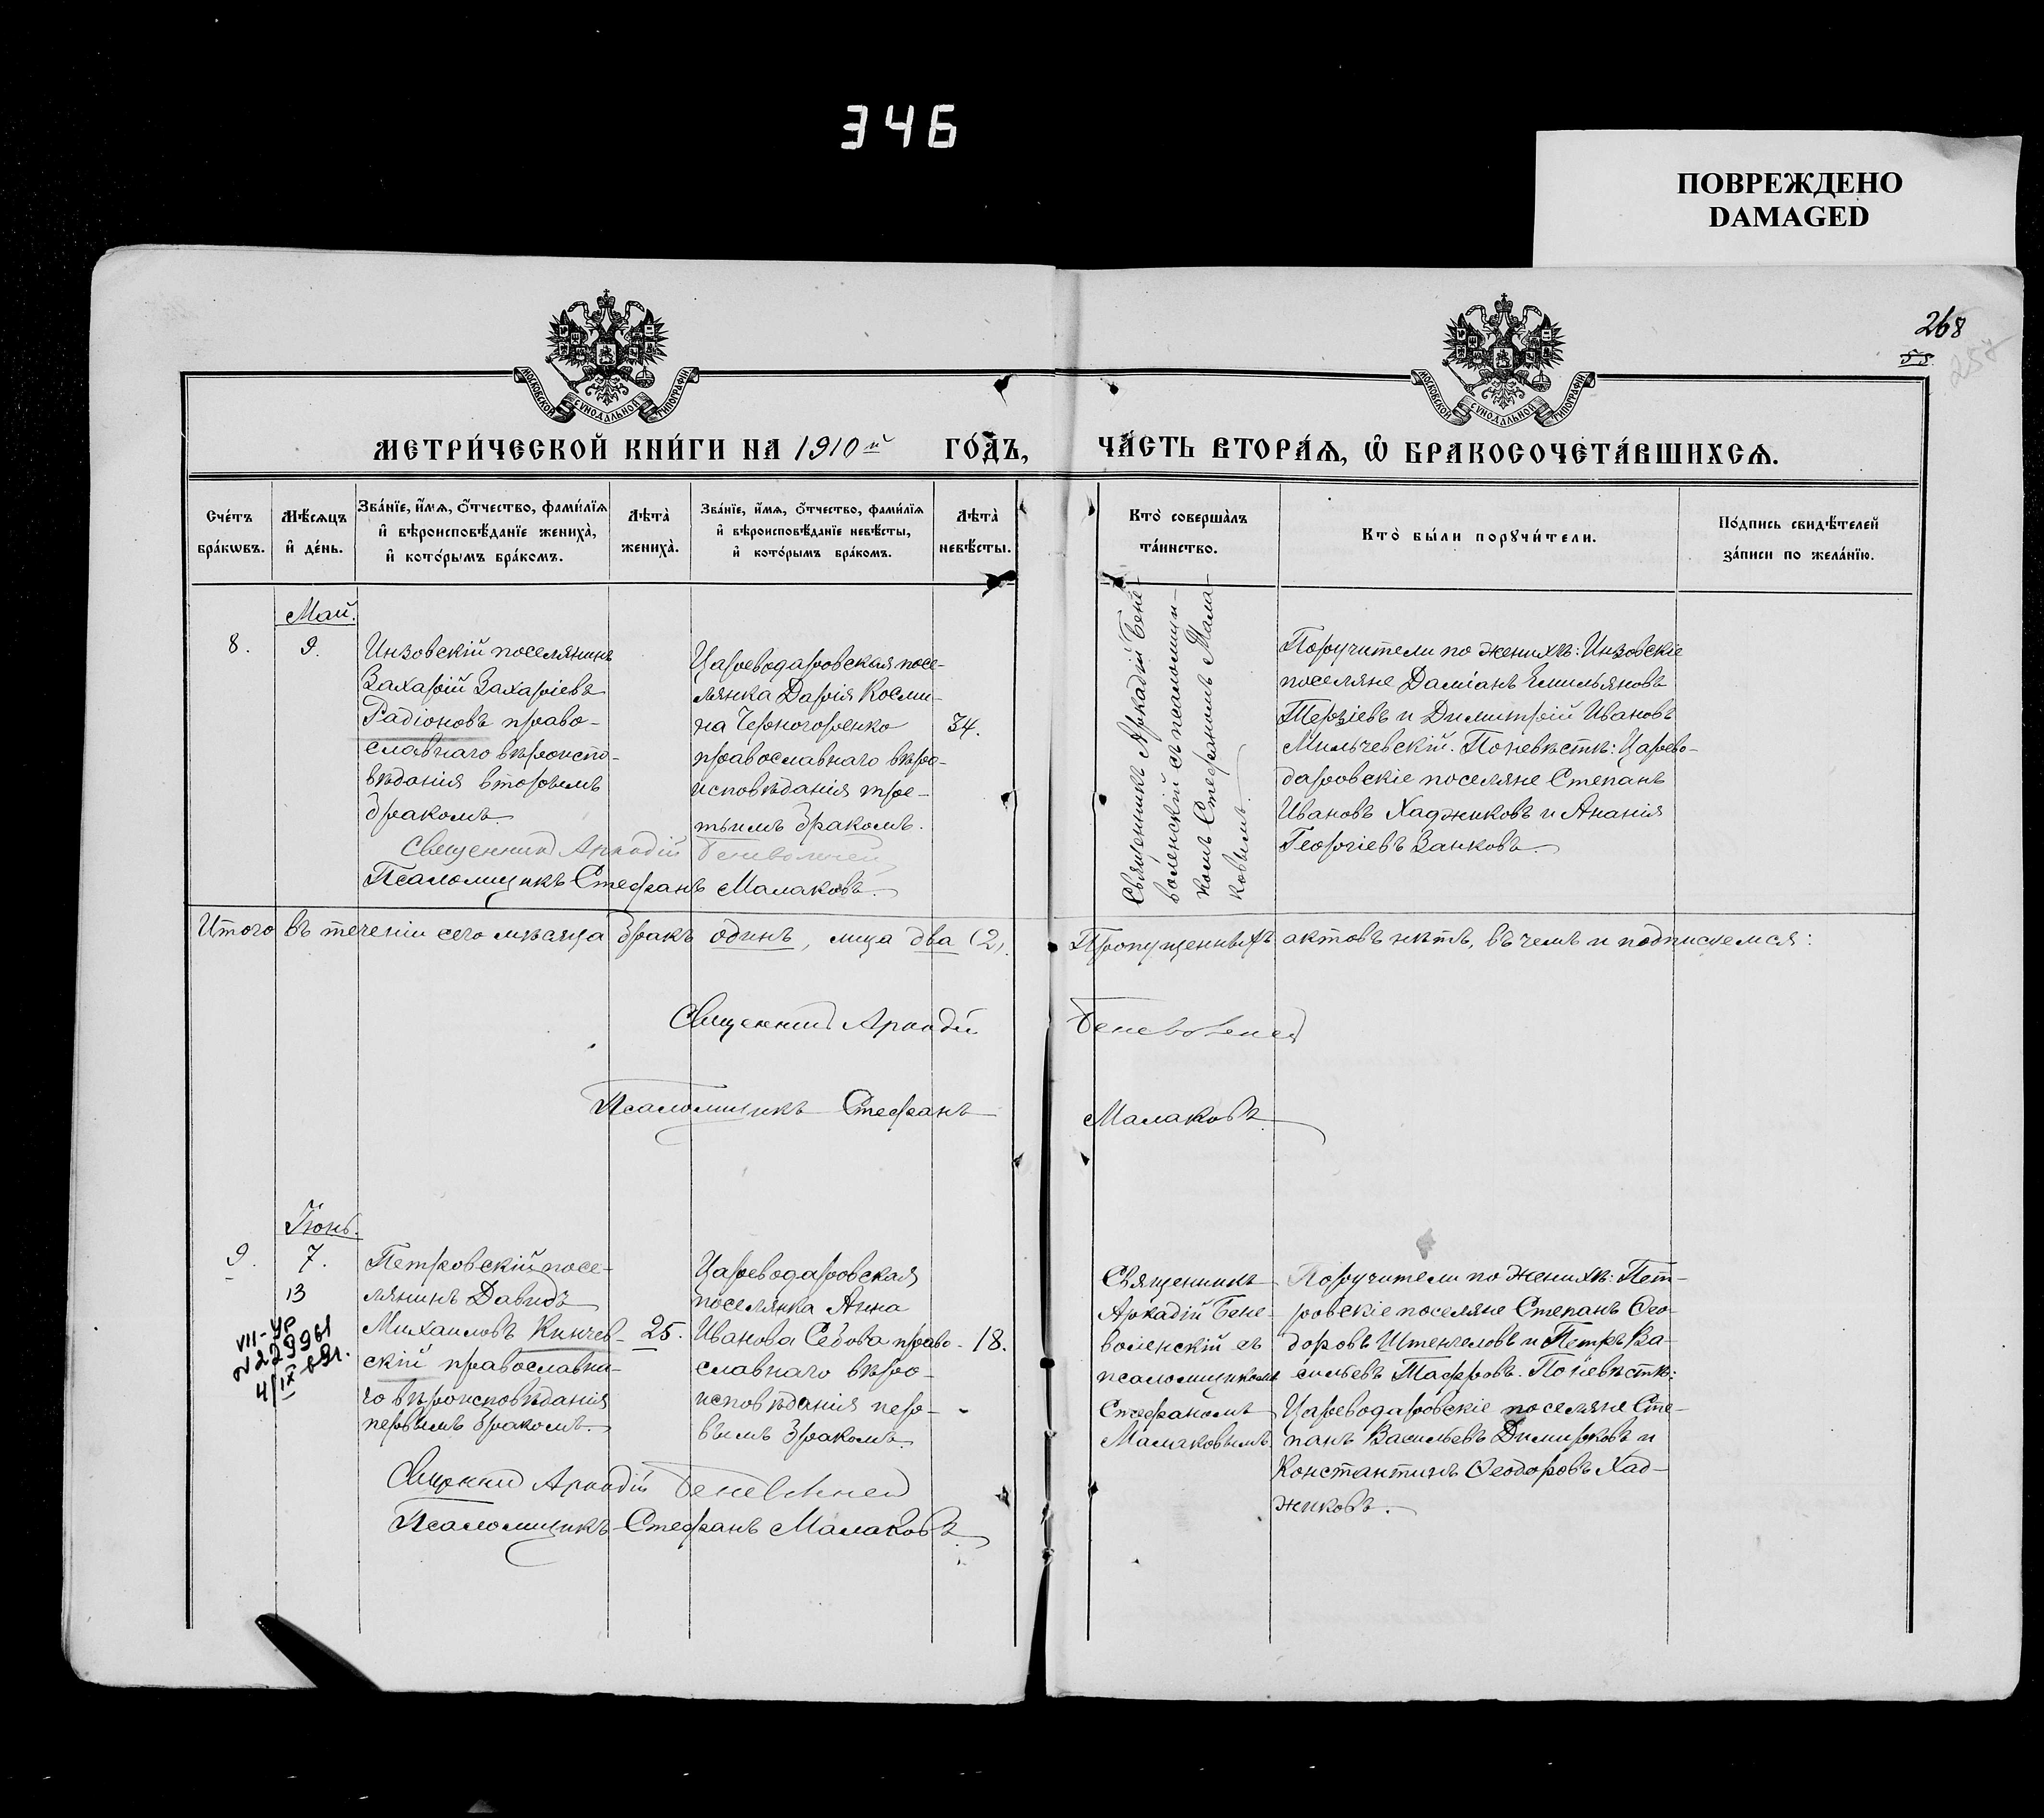 346
ПОВРЕЖДЕНО
DAMAGED
268
55
257
МОСКОВСКОЙ СѴНОДАЛЬНОЙ ТИПОГРАФІИ
МОСКОВСКОЙ СѴНОДАЛЬНОЙ ТИПОГРАФІИ
МЕТРИ́ЧЕСКОЙ КНИ́ГИ НА 1910й ГО́ДЪ,
ЧА́СТЬ ВТОРА́Ѧ, Ѽ БРАКОСОЧЕТА́ВШИХСѦ.
Сче́тъ
бра́кѡвъ.
Мѣ́сѧцъ
и҆ де́нь.
Зва́нїе, и҆́мѧ, ѻ҆́тчество, фами́лїѧ
и҆ вѣроисповѣ́данїе жениха̀,
и҆ кото́рымъ бра́комъ.
Лѣта̀
жениха̀.
Зва́нїе, и҆́мѧ, ѻ҆́тчество, фами́лїѧ
и҆ вѣроисповѣ́данїе невѣ́сты,
и҆ кото́рымъ бра́комъ.
Лѣта̀
невѣ́сты.
Кто̀ соверша́лъ
та́инство.
Кто̀ бы́ли порꙋчи́тели.
По́дпись свидѣ́телей
за́писи по жела́нїю.
Май.
8.
9.
Инзовскій поселянинъ
Захарій Захаріевъ
Радіоновъ право-
славнаго вѣроиспо-
вѣданія вторымъ
бракомъ.
Цареводаровская посе-
лянка Дарія Косми-
на Черногоренко
православнаго вѣро-
исповѣданія тре-
тьимъ бракомъ.
34.
Священникъ Аркадій Бене-
воленскій съ псаломщи-
комъ Стефаномъ Мала-
ковымъ.
Поручители по женихѣ: Инзовскіе
поселяне Даміанъ Емильяновъ
Терзіевъ и Димитрій Ивановъ
Мильчевскій. По невѣстѣ: Царево-
даровскіе поселяне Степанъ
Ивановъ Хаджиковъ и Ананія
Георгіевъ Занковъ.
Священник Аркадій Беневоленск
Псаломщикъ Стефанъ Малаковъ.
Итого въ теченіи сего мѣсяца бракъ одинъ, лица два (2). Пропущенныхъ актовъ нѣтъ, въ чемъ и подписуемся:
Священник Аркадій Беневоленск
Псаломщикъ Стефанъ Малаковъ.
Іюнь.
9.
7.
13
VII-УР
N 229961
4/IX
Петровскій посе-
лянинъ Давидъ
Михаиловъ Кинчев-
скій православна-
го вѣроисповѣданія
первымъ бракомъ.
25.
Цареводаровская
поселянка Анна
Иванова Себова право-
славнаго вѣро-
исповѣданія пер-
вымъ бракомъ.
18.
Священникъ
Аркадій Бене-
воленскій съ
псаломщикомъ
Стефаномъ
Малаковымъ.
Поручители по женихѣ: Пет-
ровскіе поселяне Степанъ Ѳео-
доровъ Штенгеловъ и Петръ Ва-
сильевъ Тафровъ. По невѣстѣ:
Цареводаровскіе поселяне Сте-
панъ Васильевъ Димировъ и
Константинъ Ѳеодоровъ Хад-
жиковъ.
Священник Аркадій Беневоленск
Псаломщикъ Стефанъ Малаковъ.